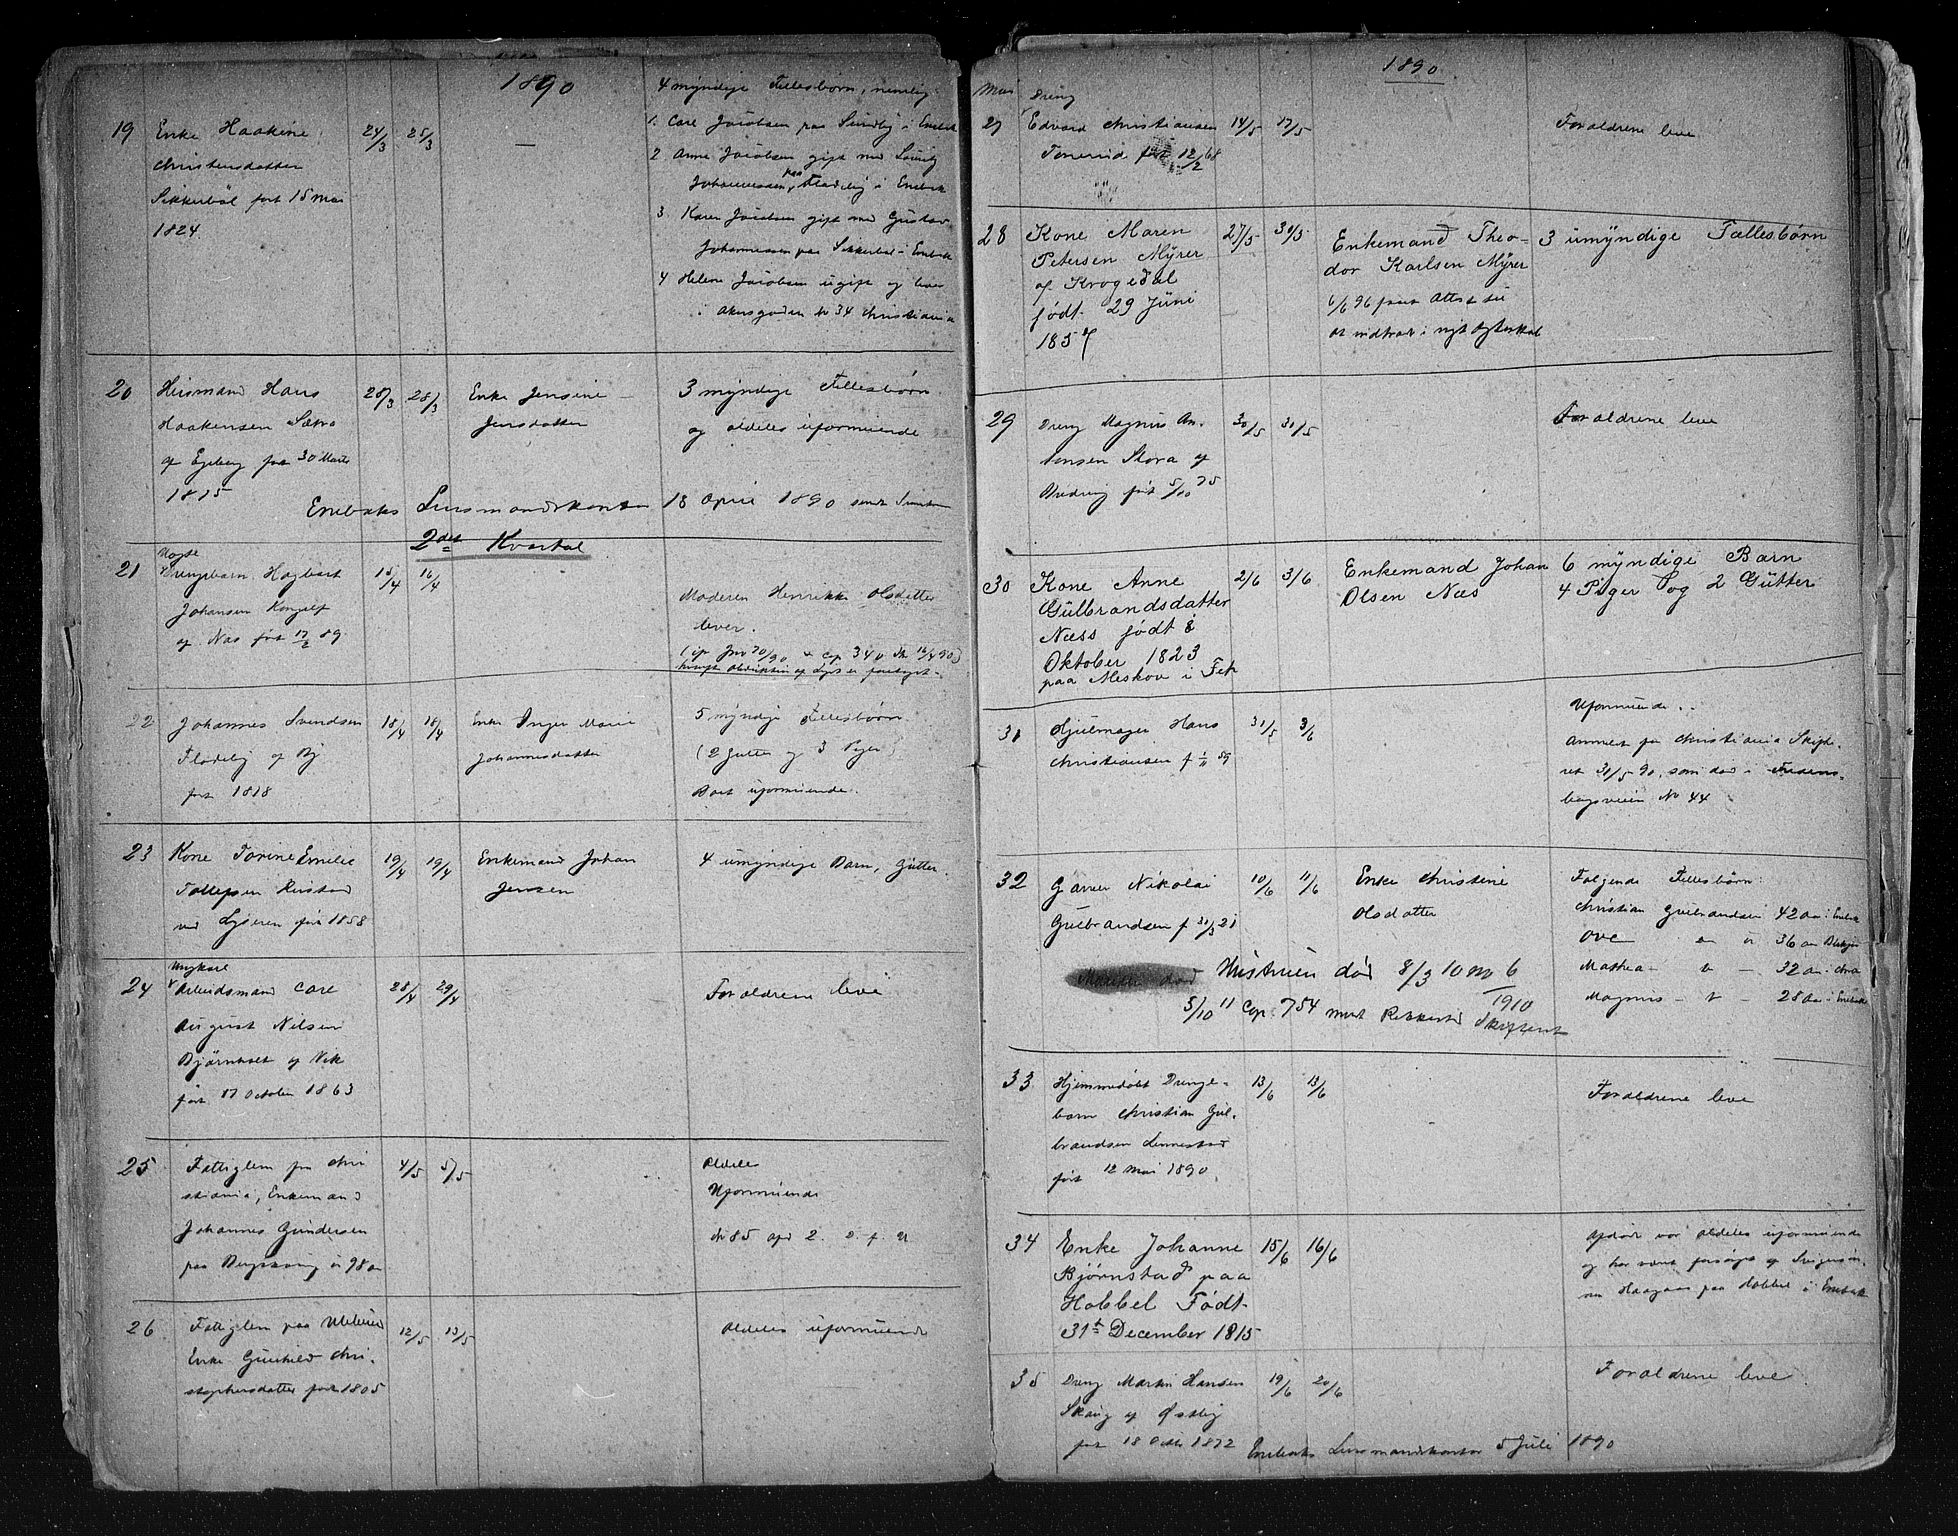 1890
4 myndige Fællesbørn, nemlig
19 Enke Haakine 24/3 25/3 — 1. Carl Jacobsen paa Sundby i Enebak
Christensdatter 2 Anne Jacobsen gift med
Sikkerbøl født 15 Mai Johannessen, paa Fladeby i Enebak
1824. 3 Karen Jacobsen gift med Gustav
Johannessen paa Sikkerbøl i Enebak
4 Helene Jacobsen ugift og lever
i Akersgaden No 34 Christiania
20 Husmand Hans 28/3 28/3 Enke Jensine 3 myndige Fællesbørn
Haakensen Sætra Jensdatter og aldeles uformuende
af Egeberg født 30 Marts
1815
Enebaks Lensmandskontor 18 April 1890
2det Kvartal
21 Drengebarn Hagbart 15/4 16/4 Moderen Henrikke Olsdatter
Johansen lever.
af Næs født 17/2 89
22 Johannes Svendsen 18/4 18/4 Enke Inger Marie 5 myndige Fællesbørn
Fladeby af By Johannesdatter (2 Gutter og 3 Piger)
født 1818 Boet uformuende.
23 Kone Torine Emilie 19/4 19/4 Enkemand Johan 4 umyndige Barn, Gutter.
Tollefsen Jensen
ved Lyseren født 1858
24 Ungkarl
Arbeidsmand Carl 28/4 29/4 Forældrene leve
August Nilsen
af Vik
født 17 October 1863
25 Fattiglem fra Chri 4/5 5/5 Aldeles
stiania, Enkemand Uformuende
Johannes Gundersen
paa 98 aar
26 Fattiglem paa 12/5 13/5 Aldeles uformuende
Enke Gunhild Chri-
stophersdatter født 1805
1890
Dreng
27 Edvard Christiansen 14/5 17/5 Forældrene leve
født 12/2 68
28 Kone Maren 27/5 30/5 Enkemand Theo- 3 umyndige Fællesbørn
Petersen Myrer dor Karlsen Myrer
af Krogedal 6/6 96 faaet Attest til
født 29 Juni at indtræde i nyt Ægteskab
1857
29 Dreng Magnus An- 30/5 31/5 Forældrene leve
tonsen Stora af
født 5/10 75
30 Kone Anne 2/6 3/6 Enkemand Johan 6 myndige Barn
Gulbrandsdatter Olsen Næs 4 Piger og 2 Gutter
Næss født 8
Oktober 1823
paa Meskov i Fet
31 Hjulmager Hans 31/5 3/6 Uformuende.
Christiansen f 1/11 59 Anmeldt fra Christiania Skifte-
ret 31/5 90, som død i
No 44
32 Garver Nikolai 10/6 11/6 Enke Christine Følgende Fællesbørn:
Gulbrandsen f 31/3 21 Olsdatter Christian Gulbrandsen 42 aar i Enebak
Ove 36 aar
Mathea 32 aar
Magnus 28 aar i Enebak
Hustruen død 8/3 10 No 6
1910
5/10 11 Cop. 754
33 Hjemmedøbt Drenge- 13/6 13/6 Forældrene leve
barn Christian Gul-
brandsen
født 12 Mai 1890
34 Enke Johanne 15/6 16/6 Afdøde var aldeles uformuende
Bjørnstad paa og har været forsørget af Svigersøn-
Hobbel Født nen Haagaas paa Hobbel i Enebak
31te December 1815
35 Dreng Martin Hansen 19/6 20/6 Forældrene leve.
Skaug af Østby
født 18 1872
Enebaks Lensmandskontor 5 Juli 1890